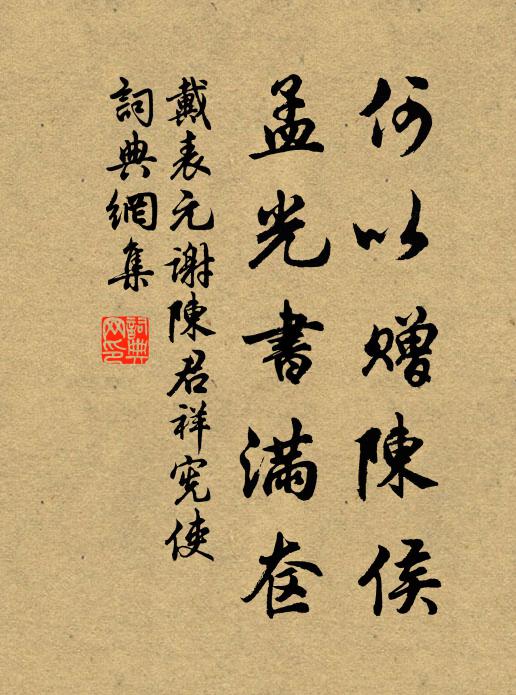 何以贈陳侯
孟光書滿奁
戴表元謝陳君祥宪使
詞典網集
詞典
网印